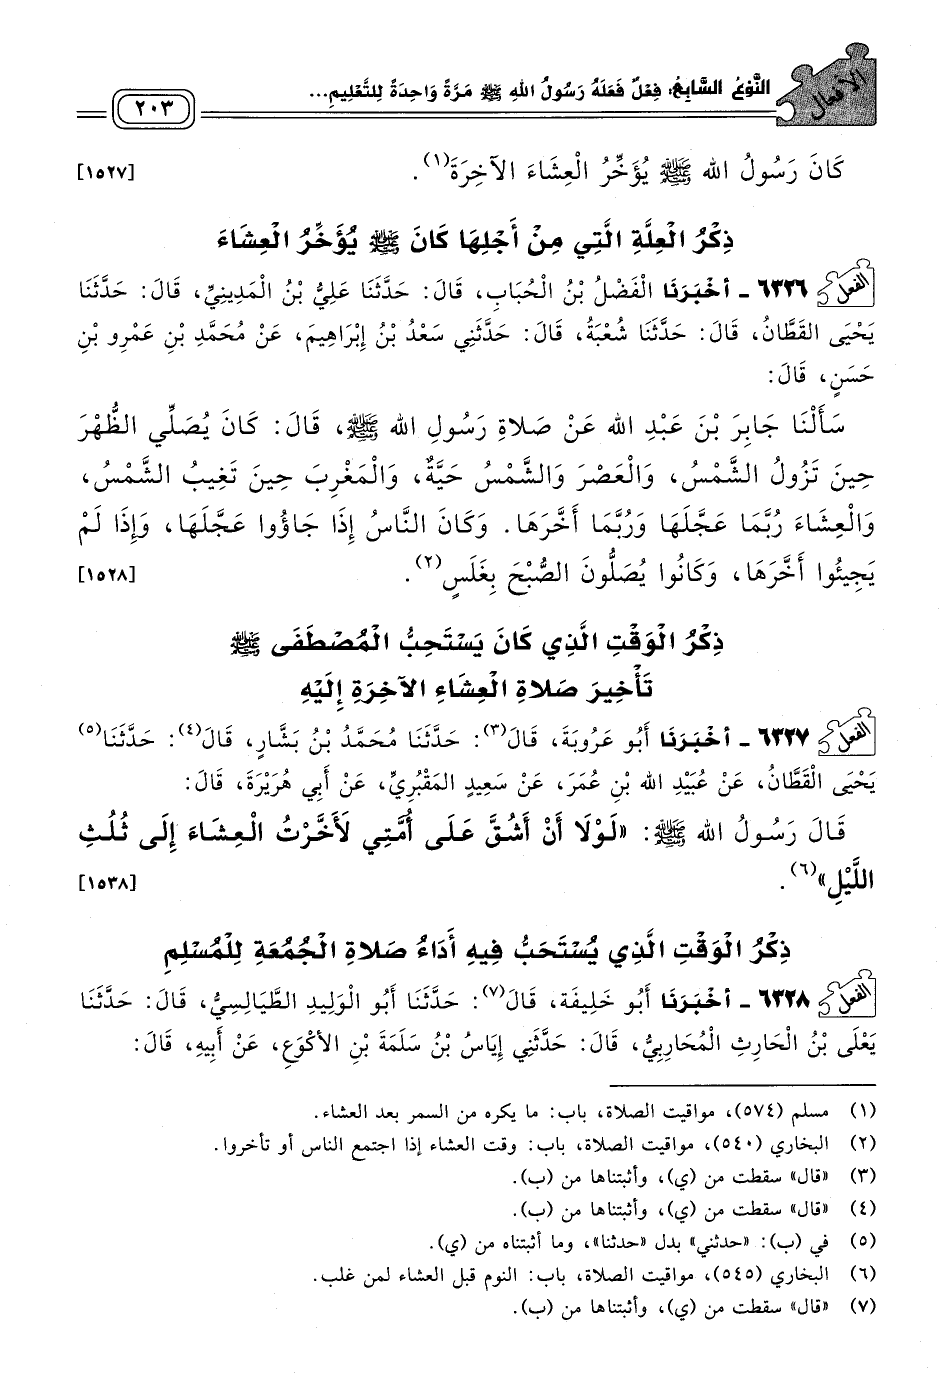 الأفعال
النَّوْعُ السَّابِعُ: فِعْلٌ فَعَلَهُ رَسُولُ اللهِ ﷺ مَرَّةً وَاحِدَةً لِلتَّعْلِيمِ...
٢٠٣
كَانَ رَسُولُ الله ﷺ يُؤَخِّرُ الْعِشَاءَ الآخِرَةَ(١). [١٥٢٧]
ذِكْرُ الْعِلَّةِ الَّتِي مِنْ أَجْلِهَا كَانَ ﷺ يُؤَخِّرُ الْعِشَاءَ
الفعل ٦٣٢٦ - أَخْبَرَنَا الْفَضْلُ بْنُ الْحُبَابِ، قَالَ: حَدَّثَنَا عَلِيُّ بْنُ الْمَدِينِيِّ، قَالَ: حَدَّثَنَا
يَحْيَى القَطَّانُ، قَالَ: حَدَّثَنَا شُعْبَةُ، قَالَ: حَدَّثَنِي سَعْدُ بْنُ إِبْرَاهِيمَ، عَنْ مُحَمَّدِ بْنِ عَمْرِو بْنِ
حَسَنٍ، قَالَ:
سَأَلْنَا جَابِرَ بْنَ عَبْدِ الله عَنْ صَلاةِ رَسُولِ الله ﷺ، قَالَ: كَانَ يُصَلِّي الظُّهْرَ
حِينَ تَزُولُ الشَّمْسُ، وَالْعَصْرَ وَالشَّمْسُ حَيَّةٌ، وَالْمَغْرِبَ حِينَ تَغِيبُ الشَّمْسُ،
وَالْعِشَاءَ رُبَّمَا عَجَّلَهَا وَرُبَّمَا أَخَّرَهَا. وَكَانَ النَّاسُ إِذَا جَاؤُوا عَجَّلَهَا، وَإِذَا لَمْ
يَجِيئُوا أَخَّرَهَا، وَكَانُوا يُصَلُّونَ الصُّبْحَ بِغَلَسٍ(٢). [١٥٢٨]
ذِكْرُ الْوَقْتِ الَّذِي كَانَ يَسْتَحِبُّ الْمُصْطَفَى ﷺ
تَأْخِيرَ صَلاةِ الْعِشَاءِ الآخِرَةِ إِلَيْهِ
الفعل ٦٣٢٧ - أَخْبَرَنَا أَبُو عَرُوبَةَ، قَالَ(٣): حَدَّثَنَا مُحَمَّدُ بْنُ بَشَّارٍ، قَالَ(٤): حَدَّثَنَا(٥)
يَحْيَى الْقَطَّانُ، عَنْ عُبَيْدِ الله بْنِ عُمَرَ، عَنْ سَعِيدٍ المَقْبُرِيِّ، عَنْ أَبِي هُرَيْرَةَ، قَالَ:
قَالَ رَسُولُ الله ﷺ: «لَوْلَا أَنْ أَشُقَّ عَلَى أُمَّتِي لَأَخَّرْتُ الْعِشَاءَ إِلَى ثُلُثِ
اللَّيْلِ»(٦). [١٥٣٨]
ذِكْرُ الْوَقْتِ الَّذِي يُسْتَحَبُّ فِيهِ أَدَاءُ صَلاةِ الْجُمُعَةِ لِلْمُسْلِمِ
الفعل ٦٣٢٨ - أَخْبَرَنَا أَبُو خَلِيفَة، قَالَ(٧): حَدَّثَنَا أَبُو الْوَلِيدِ الطَّيَالِسِيُّ، قَالَ: حَدَّثَنَا
يَعْلَى بْنُ الْحَارِثِ الْمُحَارِبِيُّ، قَالَ: حَدَّثَنِي إِيَاسُ بْنُ سَلَمَةَ بْنِ الأكْوَعِ، عَنْ أَبِيهِ، قَالَ:
(١) مسلم (٥٧٤)، مواقيت الصلاة، باب: ما يكره من السمر بعد العشاء.
(٢) البخاري (٥٤٠)، مواقيت الصلاة، باب: وقت العشاء إذا اجتمع الناس أو تأخروا.
(٣) «قال» سقطت من (ي)، وأثبتناها من (ب).
(٤) «قال» سقطت من (ي)، وأثبتناها من (ب).
(٥) في (ب): «حدثني» بدل «حدثنا»، وما أثبتناه من (ي).
(٦) البخاري (٥٤٥)، مواقيت الصلاة، باب: النوم قبل العشاء لمن غلب.
(٧) «قال» سقطت من (ي)، وأثبتناها من (ب).